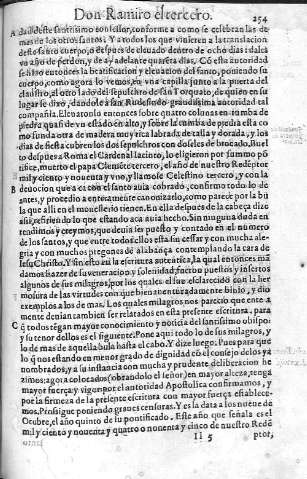 Don Ramiro el tercero. 254
A dad deste santissimo confessor, conforme a como se celebran las de
mas de los otros santos. Y a todos los que vinieren a la translacion
deste santo cuerpo, o despues de eleuado dentro de ocho dias i da les
vn año de perdon, y de ay adelante quarēta dias. Cō esta autoridad
se hizo entonces la beatificacion y eleuacion del santo, poniendo su
cuerpo, como agora lo vemos, en vna capilla junto a la puerta del
claustro, al otro lado del sepulchro de san Torquato, de quien en su
lugar se dixo, dandole a san Rudesindo grandissima autoridad tal
compañia. Eleuaronlo entonces sobre quatro colunas en tumba de
piedra quasi de vn estado en alto, y sobre la tumba de piedra esta co
mo funda otra de madera muy rica labrada de talla y dorada, y los
dias de fiesta cubren los dos sepulchros con doseles de brocado. Buel
to despues a Roma el Cardenal Iacinto, lo eligieron por summo pō
tifice, muerto el papa Clemēte tercero, el año de nuestro Redēptor
mil y ciento y nouenta y vno, y llamose Celestino tercero, y con la
B deuocion que aca con el santo auia cobrado, confirmo todo lo de
antes, y procedio a enteramente canonizarlo, como parece por la bu
la que alli en el monesterio tienen. En ella despues de la cabeça dize
assi, refiriendo lo que estando aca auia hecho. Sin ninguna duda en
tendimos y creymos, que deuia ser puesto y contado en el numero
de los santos, y que entre todos ellos esta sin cessar y con mucha ale-
gria y con muchos pregones de alabāça contemplando la cara de
Iesu Christo. Y en esto assi la escritura autentica, la qual entonces mā
damos hazer de su veneracion y solenidad, fuerō puestos y insertos
algunos de sus milagros, por los quales el fue esclarecido con la her
mosura de las virtudes con que bienauenturadamente biuio, y dio
exemplos a los de mas. Los quales milagros nos parecio que ente a
mente deuian tambien ser relatados en esta presente escritura, para
C q̄ todos tēgan mayor conocimiento y noticia del santissimo obispo
y su tenor dellos es el siguiente. Pone aqui todo lo de sus milagros, y
lo de mas de aquella bula hasta el cabo. Y dize luego. Pues para que
lo q̄ nos estando en menos grado de dignidad cō el consejo de los ya
nombrados, y a su instancia con mucha y prudente deliberacion he
zimos: agora colocados (obrandolo el señor) en mayor alteza, tenga
mayor fuerça y vigor: por el autoridad Apostolica confirmamos, y
por la firmeza de la presente escritura con mayor fuerça establece-
mos. Prosigue poniendo graues censuras. Y es la data a los nueue de
Octubre, el año quinto de su pontificado. Este año que señala es el
mil y ciento y nouenta y quatro o nouenta y cinco de nuestro Redē
Ii 5 ptor,